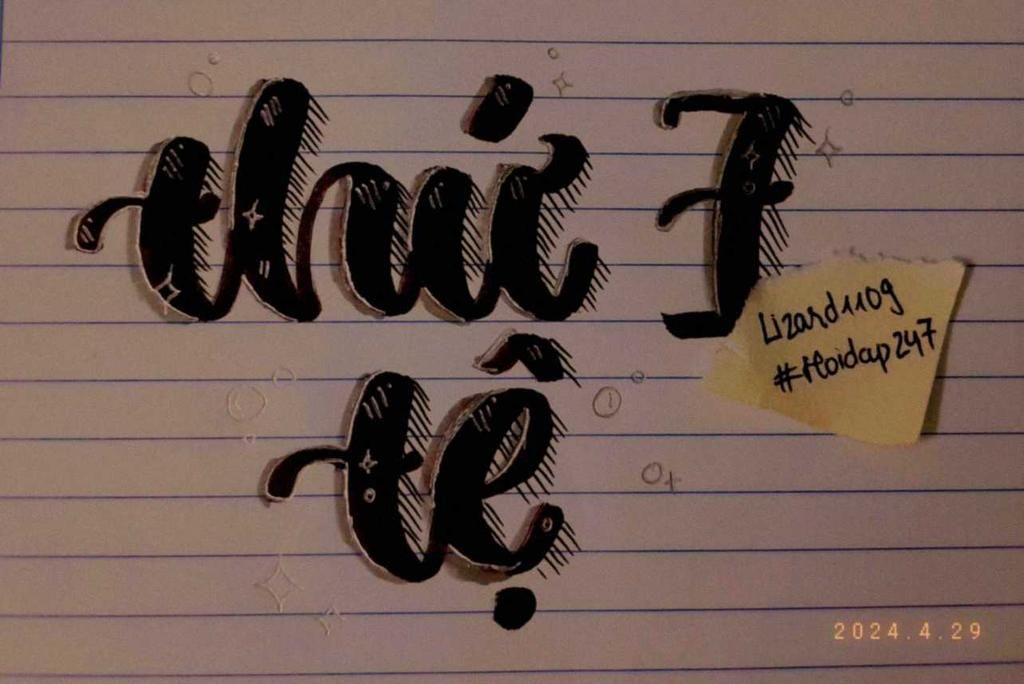 thứ 7
tệ
Lizard1109
#Hoidap247
2024.4.29